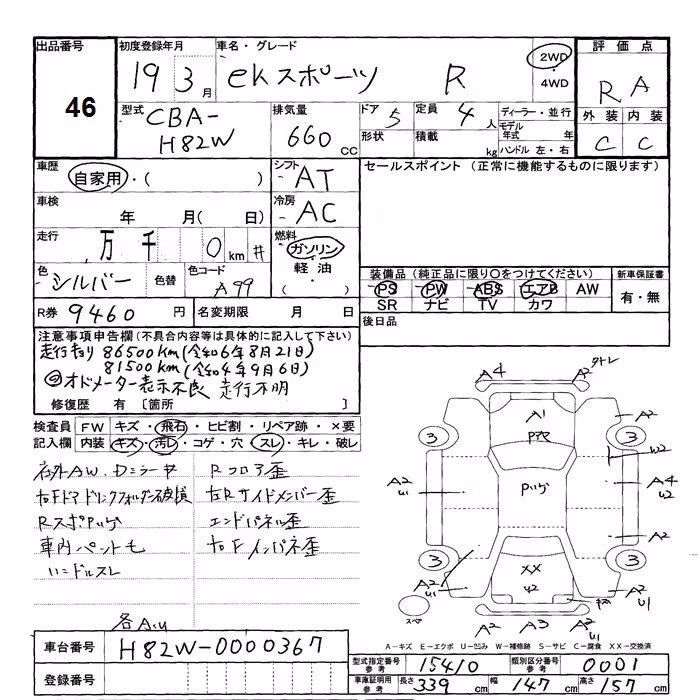 出品番号
46
初度登録年月
19 3月
車名・グレード
ekスポーツ R
2WD
4WD
評価点
R A
外装 内装
C C
型式
CBA-
H82W
排気量
660 CC
ドア 5
形状
定員 4人
積載 kg
ディーラー・並行
モデル年式 年
ハンドル 左・右
車歴
自家用・( )
シフト
AT
セールスポイント (正常に機能するものに限ります)
車検
年 月( 日)
冷房
AC
走行
万 千 0 km #
燃料
ガソリン
軽油
( )
色
シルバー
色替
色コード
A99
装備品(純正品に限り○をつけてください)
PS PW ABS エアB AW
SR ナビ TV カワ
新車保証書
有・無
R券 9460 円
名変期限 月 日
後日品
注意事項申告欄(不具合内容等は具体的に記入して下さい)
走行キョリ 86500km(令和6年8月21日)
81500km(令和4年9月6日)
オドメーター表示不良 走行不明
修復歴 有 [箇所 ]
検査員 FW キズ・飛石・ヒビ割・リペア跡・×要
記入欄 内装 キズ・汚レ・コゲ・穴・スレ・キレ・破レ
社外AW、Dミラーキ
Rフロア歪
右Fドアドリンクフォルダー破損
右Rサイドメンバー歪
RスポPリグ
エンドパネル歪
車内ペット毛
右Fインパネ歪
ハンドルスレ
各A.U
車台番号 H82W-0000367
登録番号
A4
A2
A1
A2
3
3
W2
A2
U1
Pリグ
A4
U2
A2
3
3
XX
U2
A2
U1
A2
U1
A2 A3 A2
スペア
A-キズ E-エクボ U-凹み W-補修跡 S-サビ C-腐食 XX-交換済
型式指定番号 参考 15410
類別区分番号 参考 0001
車庫証明用 参考 長さ 339 cm 幅 147 cm 高さ 157 cm